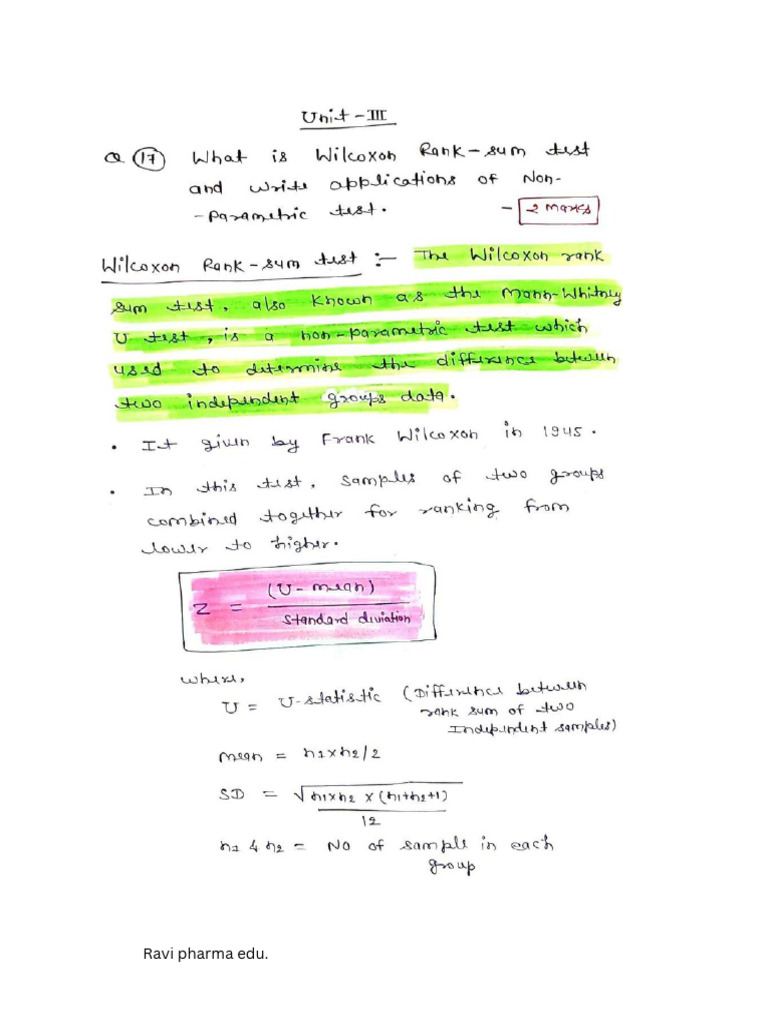 Unit-III
Q (17) What is Wilcoxon Rank-sum test
and write applications of Non-
-parametric test. - 2 Marks
Wilcoxon Rank-sum test :- The Wilcoxon rank
sum test, also known as the Mann-Whitney
U test, is a non-parametric test which
used to determine the difference between
two independent groups data.
• It given by Frank Wilcoxon in 1945.
• In this test, samples of two groups
combined together for ranking from
lower to higher.
(U - mean)
Z =
standard deviation
where,
U = U-statistic (Difference between
rank sum of two
Independent samples)
mean = n1×n2/2
SD = √n1×n2 × (n1+n2+1)
12
n1 & n2 = No of sample in each
group
Ravi pharma edu.